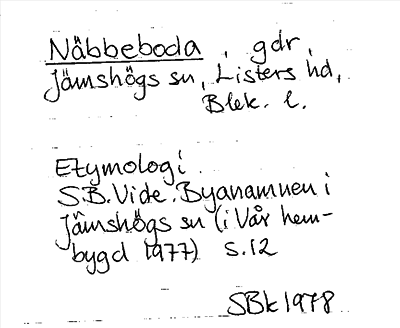 Näbbeboda, gdr,
Jämshögs sn, Listers hd,
Blek. l.
Etymologi
S.B. Vide. Byanamnen i
Jämshögs sn (i Vår hem-
bygd 1977) s. 12
SBk 1978